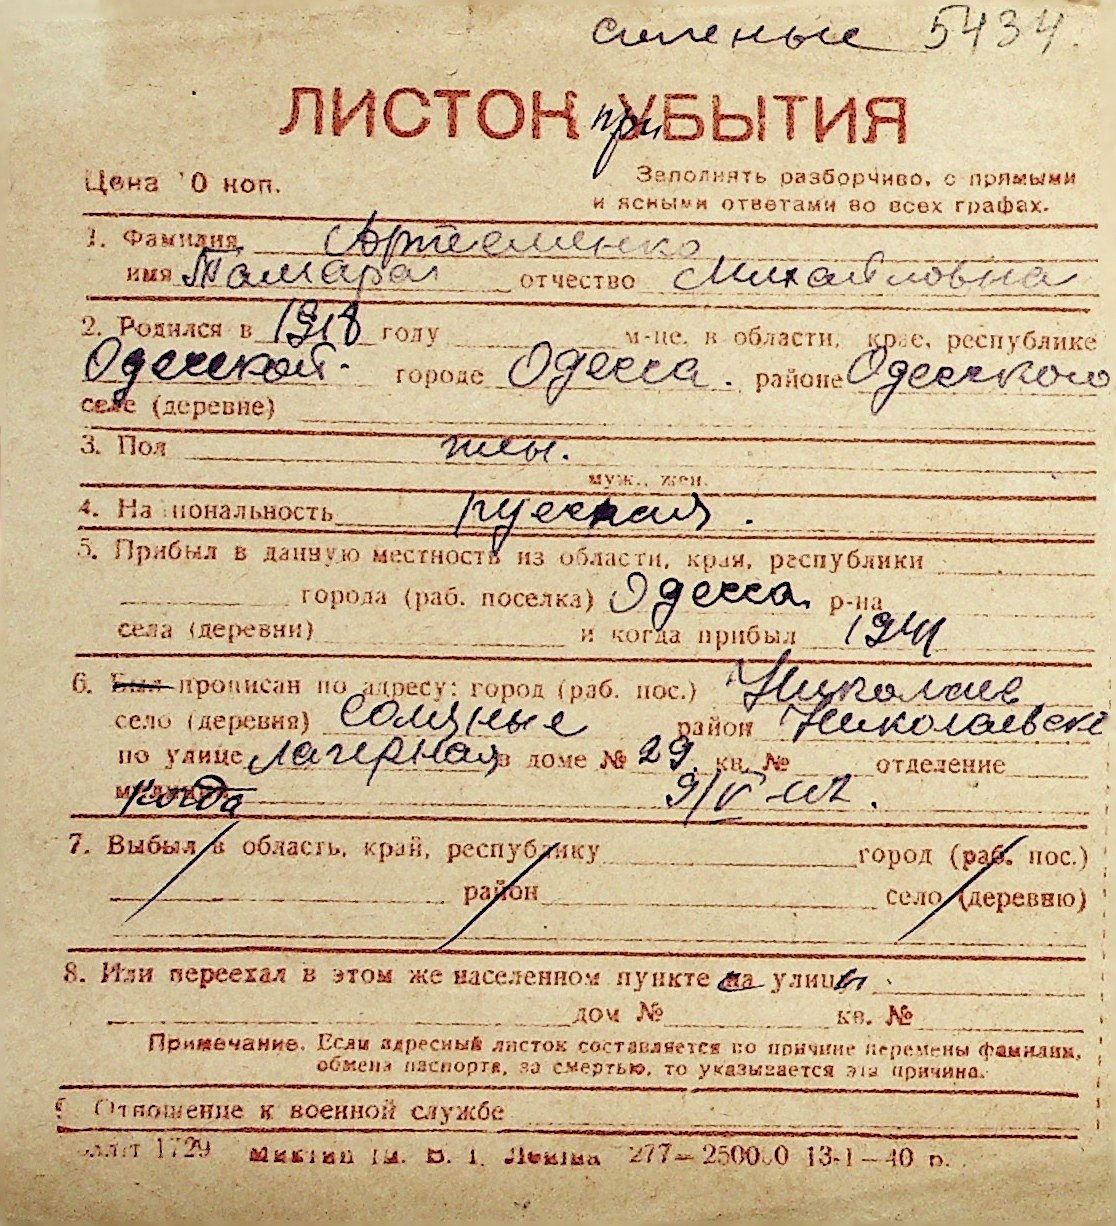 5434
ЛИСТОК при УБЫТИЯ
Цена 10 коп.
Заполнять разборчиво, с прямыми
и ясными ответами во всех графах.
1. Фамилия Артеменко
имя Тамара отчество Михайловна
2. Родился в 1918 году м-це, в области, крае, республике
Одесской. городе Одесса. районе Одесского
селе (деревне)
3. Пол жен.
муж., жен.
4. Национальность русская.
5. Прибыл в данную местность из области, края, республики
города (раб. поселка) Одесса. р-на
села (деревни) и когда прибыл 1941
6. Был прописан по адресу: город (раб. пос.) Николаев
село (деревня) Соляные район Николаевск
по улице Лагерная в доме № 29 кв. № отделение
милиции когда 9/IV-42.
7. Выбыл в область, край, республику город (раб. пос.)
район село (деревню)
8. Или переехал в этом же населенном пункте с улицы
дом № кв. №
Примечание. Если адресный листок составляется по причине перемены фамилии,
обмена паспорта, за смертью, то указывается эта причина.
9. Отношение к военной службе
1729 им. В. І. Леніна 277— 250000 13-1—40 р.